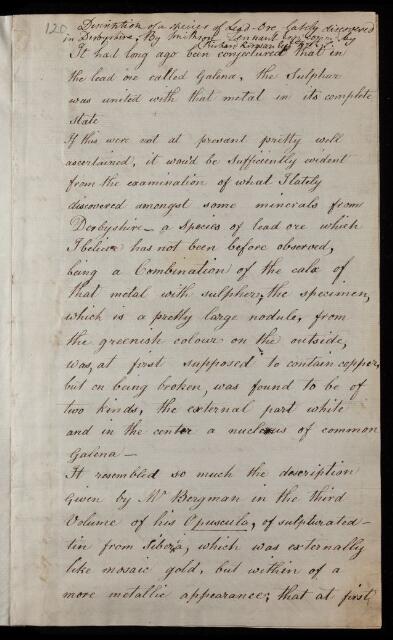 120 Description of a species of Lead-Ore lately discovered
in Derbyshire; By Smithson Tennant Esq. Comm. by
Richard Kirwan Esq. F.R.S.
It had long ago been conjectured that in
the lead ore called Galena, the Sulphur
was united with that metal in its complete
state
If this were not at present pretty well
ascertained, it wou'd be sufficiently evident
from the examination of what I lately
discovered amongst some minerals from
Derbyshire – a species of lead ore which
I believe has not been before observed,
being a Combination of the calx of
that metal with sulpher; the specimen,
which is a pretty large nodule, from
the greenish colour on the outside,
was, at first supposed to contain copper,
but on being broken, was found to be of
two kinds, the external part white
and in the center a nucleus of common
Galena –
It resembled so much the description
given by Mr Bergman in the third
Volume of his Opuscula, of sulpturated –
tin from Siberia, which was externally
like mosaic gold, but within of a
more metallic appearance; that at first